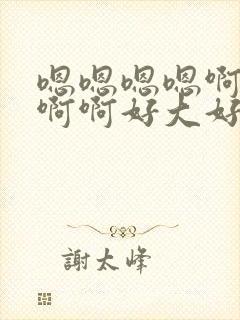 嗯嗯嗯嗯啊
啊啊好大好
謝太峰